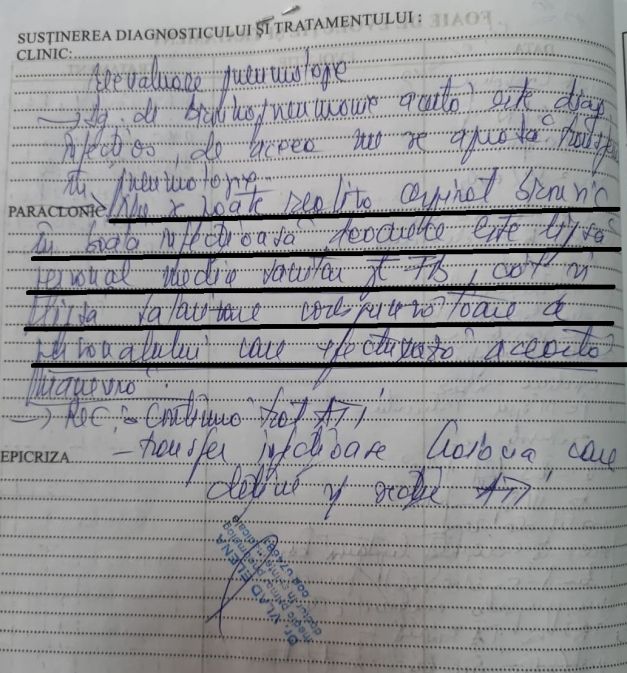 SUSȚINEREA DIAGNOSTICULUI ȘI TRATAMENTULUI :
CLINIC:
Reevaluare pneumologie
→ de bronhopneumonie acută este diag
infecțios, de aceea nu se aprobă transfer
în pneumologie
PARACLINIC Nu se poate realiza aspirat bronșic
în boala infecțioasă deoarece este lipsă
personal medic sanitar și TB, cât și
lipsa salarizare corespunzătoare a
personalului care efectuează această
manevră.
→ REC: - Continuă trat ATI
EPICRIZA - transfer infecțioase Craiova care
deține și secție ATI
Dr. VLAD ELENA
medic primar pneumolog